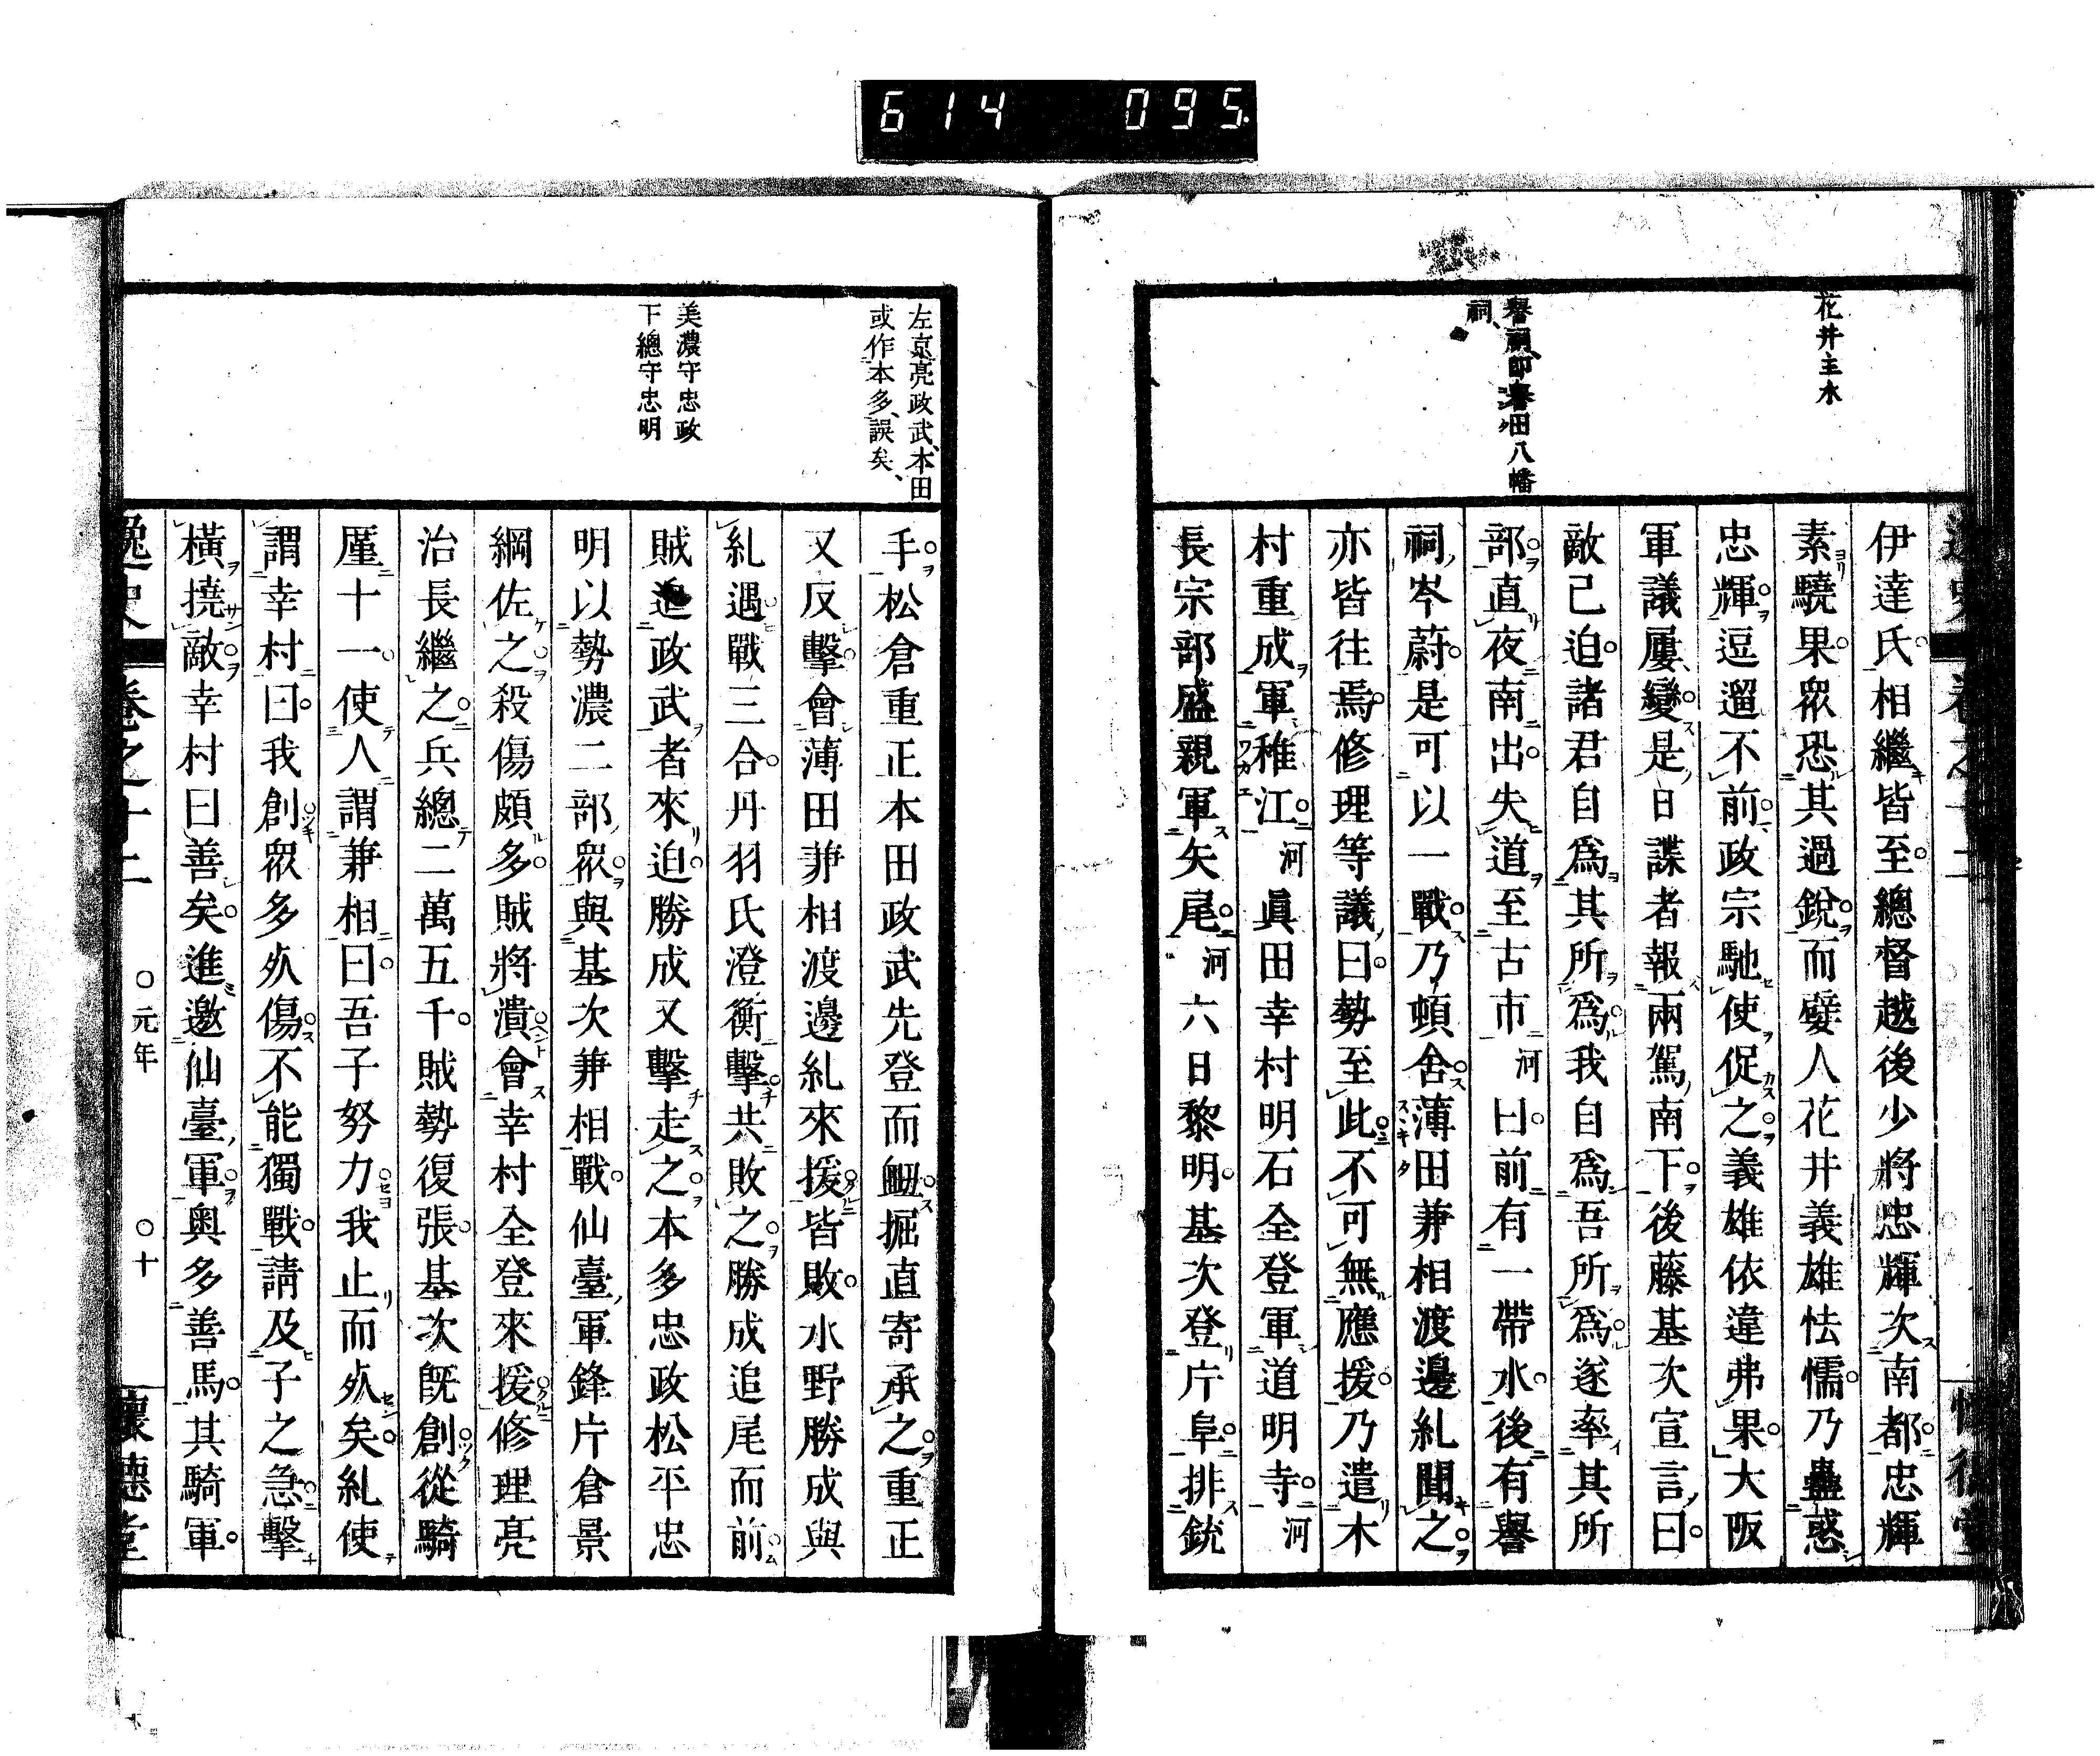 6 1 4 0 9 5
花井主水
譽祠、即譽田八幡
祠、
伊達氏相繼皆至總督越後少將忠輝次南都忠輝
素驍果衆恐其過銳而嬖人花井義雄怯懦乃蠱惑
忠輝逗遛不前政宗馳使促之義雄依違弗果大阪
軍議屢變是日諜者報兩駕南下後藤基次宣言曰
敵已迫諸君自爲其所爲我自爲吾所爲遂率其所
部直夜南出失道至古市河曰前有一帶水後有譽
祠岑蔚是可以一戰乃頓舍薄田兼相渡邊糺聞之
亦皆往焉修理等議曰勢至此不可無應援乃遣木
村重成軍稚江河眞田幸村明石全登軍道明寺河
長宗部盛親軍矢尾河六日黎明基次登片阜排銃
左京亮政武、本田
或作本多、誤矣、
美濃守忠政
下總守忠明
手松倉重正本田政武先登而衂掘直寄承之重正
又反擊會薄田兼相渡邊糺來援皆敗水野勝成與
糺遇戰三合丹羽氏澄衡擊共敗之勝成追尾而前
賊逼政武者來迫勝成又擊走之本多忠政松平忠
明以勢濃二部衆與基次兼相戰仙臺軍鋒片倉景
綱佐之殺傷頗多賊將潰會幸村全登來援修理亮
治長繼之兵總二萬五千賊勢復張基次旣創從騎
厪十一使人謂兼相曰吾子努力我止而死矣糺使
謂幸村曰我創衆多死傷不能獨戰請及子之急擊
橫撓敵幸村曰善矣進邀仙臺軍奥多善馬其騎軍
逸史 卷之十二 〇元年 〇十 懷德堂